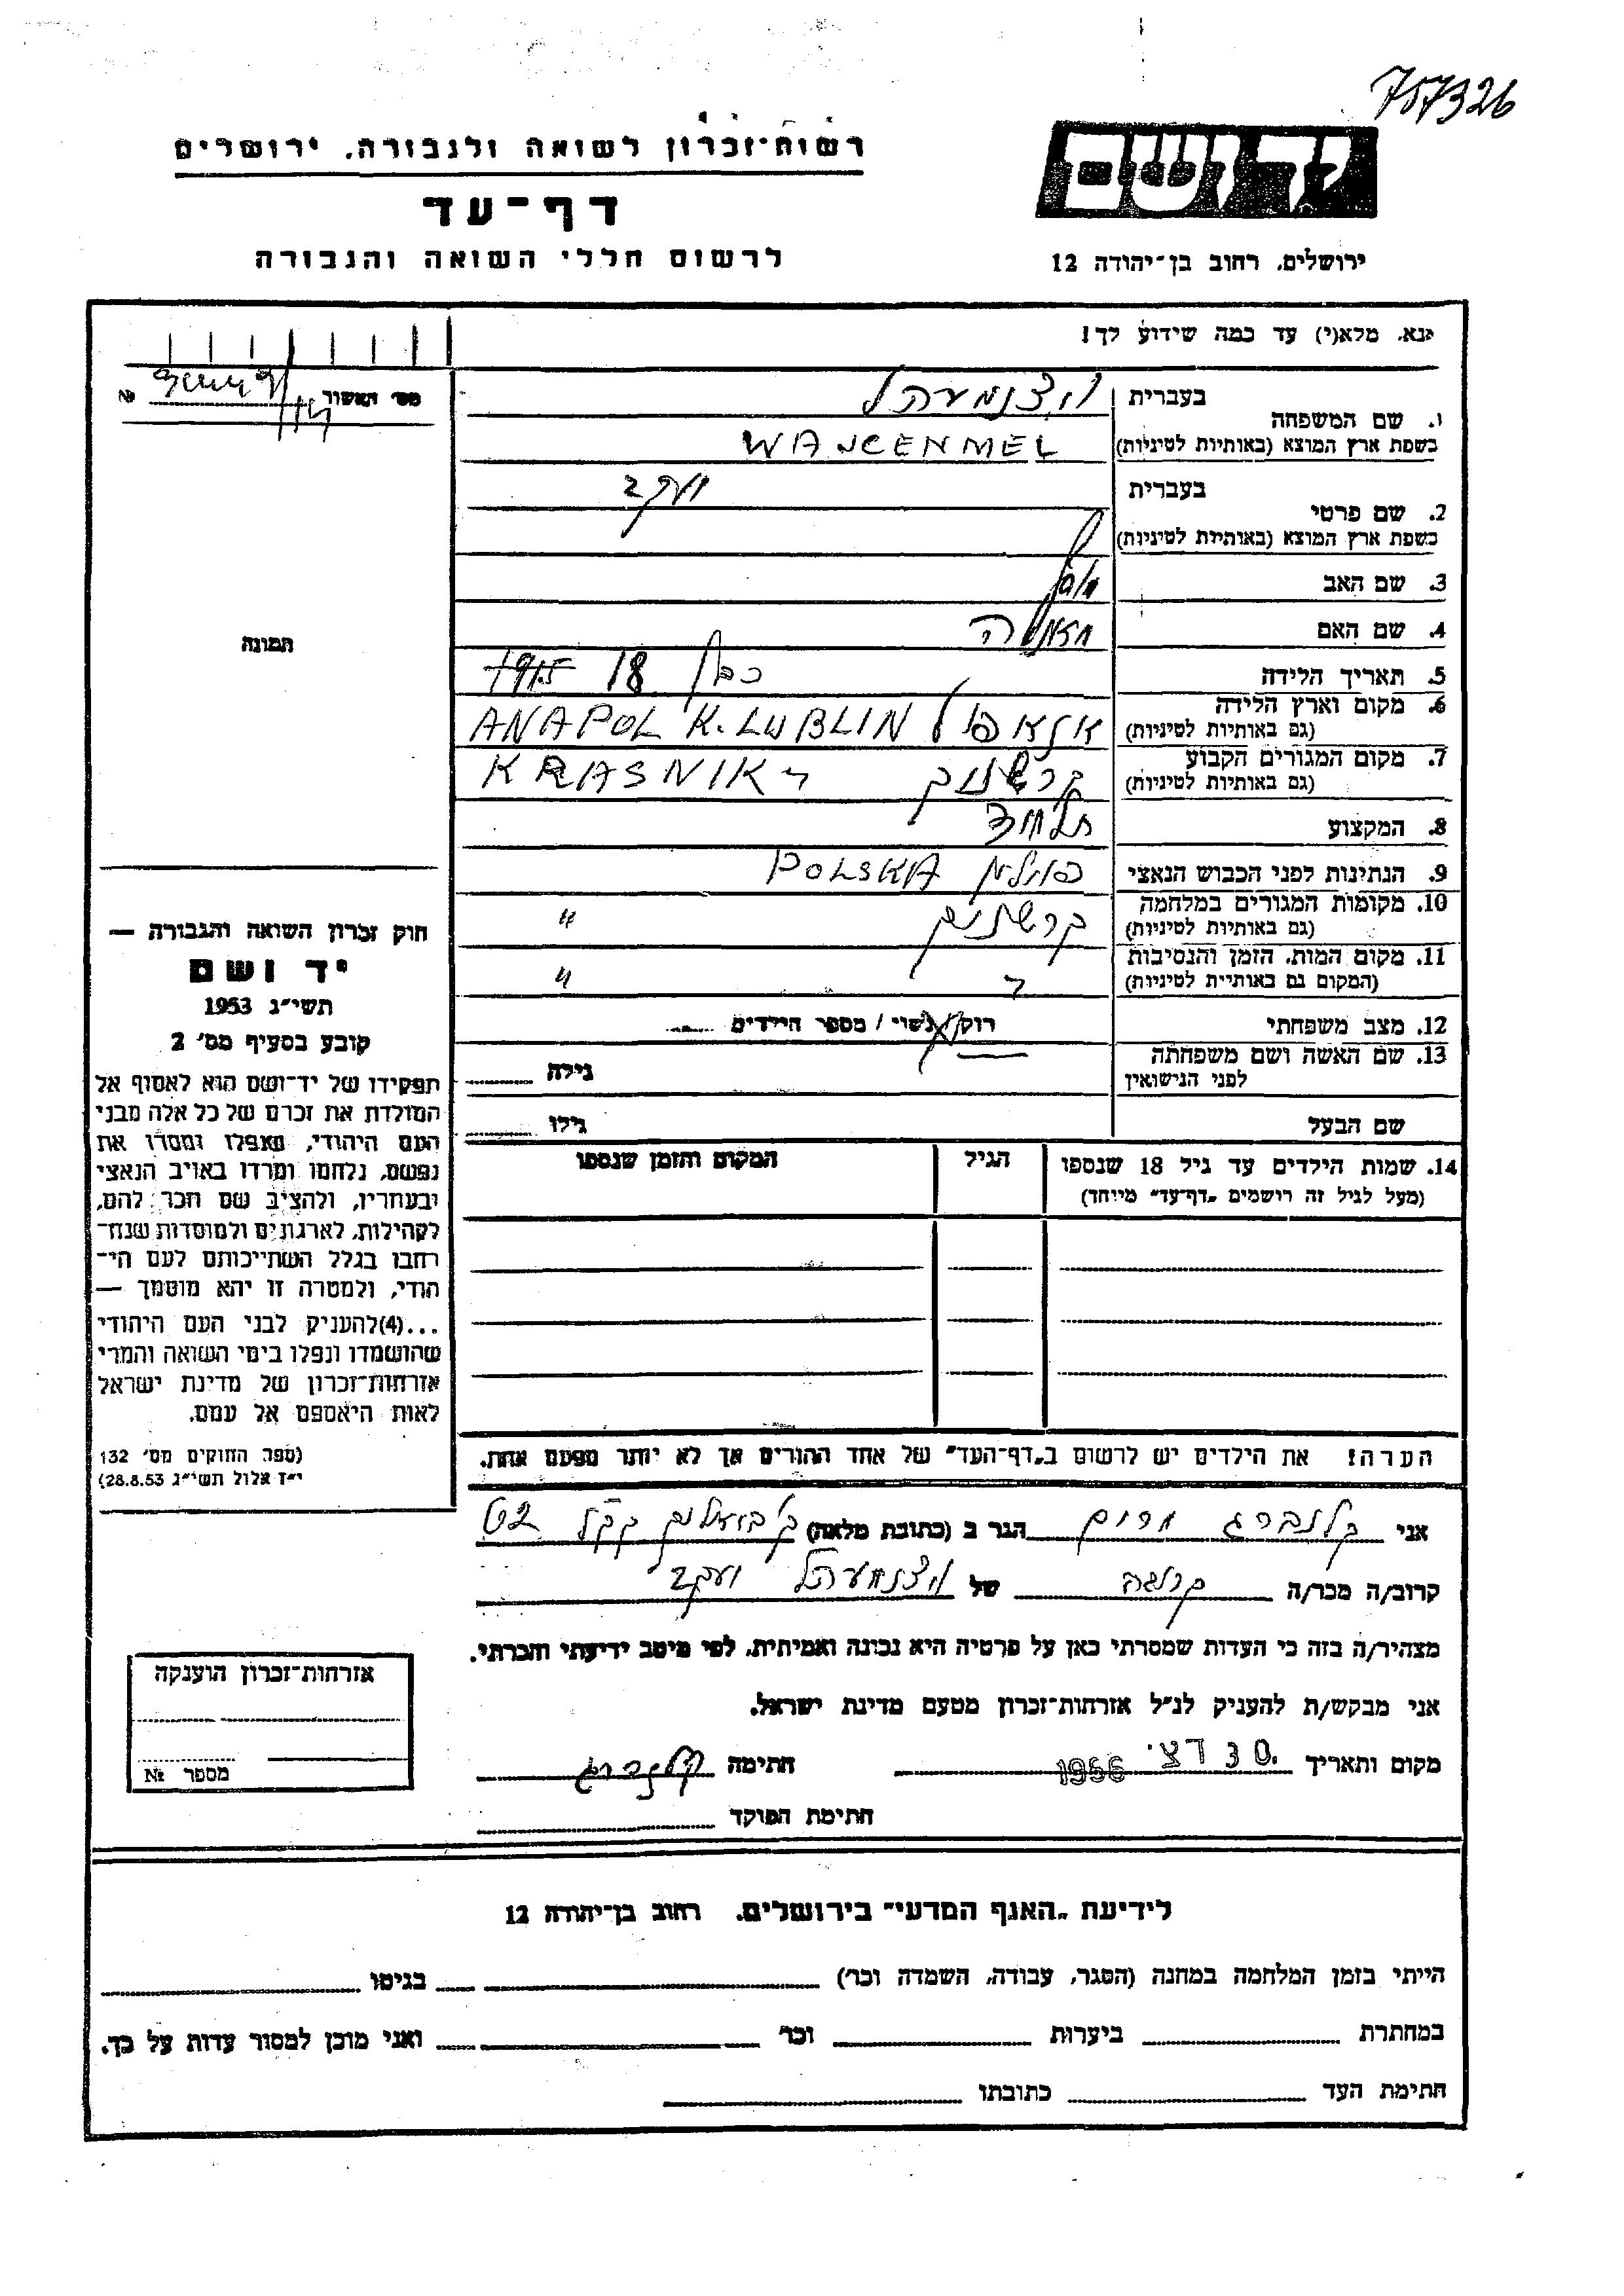 757326
רשות־זכרון לשואה ולגבורה, ירושלים
דף־עד
לרשום חללי השואה והגבורה
יד ושם
ירושלים, רחוב בן־יהודה 12
נא, מלא(י) עד כמה שידוע לך!
מס' האשור №
1. שם המשפחה
בעברית
כשפת ארץ המוצא (באותיות לטיניות) WAJCENMEL
2. שם פרטי
בעברית יעקב
כשפת ארץ המוצא (באותיות לטיניות)
3. שם האב
4. שם האם
5. תאריך הלידה 18 1915
6. מקום וארץ הלידה
(גם באותיות לטיניות) אנאפול ANAPOL K. LUBLIN
7. מקום המגורים הקבוע
(גם באותיות לטיניות) קרשניק KRASNIK
8. המקצוע
9. הנתינות לפני הכבוש הנאצי פולין POLSKA
10. מקומות המגורים במלחמה
(גם באותיות לטיניות) קרשניק "
11. מקום המות, הזמן והנסיבות
(המקום גם באותיות לטיניות) "
12. מצב משפחתי רווק/נשוי/ מספר הילדים
13. שם האשה ושם משפחתה
לפני הנישואין גילה
שם הבעל גילו
14. שמות הילדים עד גיל 18 שנספו הגיל המקום והזמן שנספו
(מעל לגיל זה רושמים „דף־עד" מייחד)
הערה! את הילדים יש לרשום ב„דף־העד" של אחד ההורים אך לא יותר מפעם אחת.
תמונה
חוק זכרון השואה והגבורה —
יד ושם
תשי"ג 1953
קובע בסעיף מס' 2
תפקידו של יד־ושם הוא לאסוף אל
המולדת את זכרם של כל אלה מבני
העם היהודי, שנפלו ומסרו את
נפשם, נלחמו ומרדו באויב הנאצי
ובעוזריו, ולהציב שם וזכר להם,
לקהילות, לארגונים ולמוסדות שנח־
רבו בגלל השתייכותם לעם הי־
הודי, ולמטרה זו יהא מוסמך —
...(4)להעניק לבני העם היהודי
שהושמדו ונפלו בימי השואה והמרי
אזרחות־זכרון של מדינת ישראל
לאות היאספם אל עמם.
(ספר החוקים מס' 132
י"ז אלול תשי"ג 28.8.53)
אני קלנברג מרים הגר ב (כתובת מלאה)
קרוב/ה מכר/ה קרובה של יעקב
מצהיר/ה בזה כי העדות שמסרתי כאן על פרטיה היא נכונה ואמיתית, לפי מיטב ידיעתי והכרתי.
אני מבקש/ת להעניק לנ"ל אזרחות־זכרון מטעם מדינת ישראל.
מקום ותאריך 30 דצ. 1956 חתימה קלנברג
חתימת הפוקד
אזרחות־זכרון הוענקה
מספר №
לידיעת „האגף המדעי" בירושלים, רחוב בן־יהודה 12
הייתי בזמן המלחמה במחנה (הסגר, עבודה, השמדה וכו') בגיטו
במחתרת ביערות וכו' ואני מוכן למסור עדות על כך.
חתימת העד כתובתו